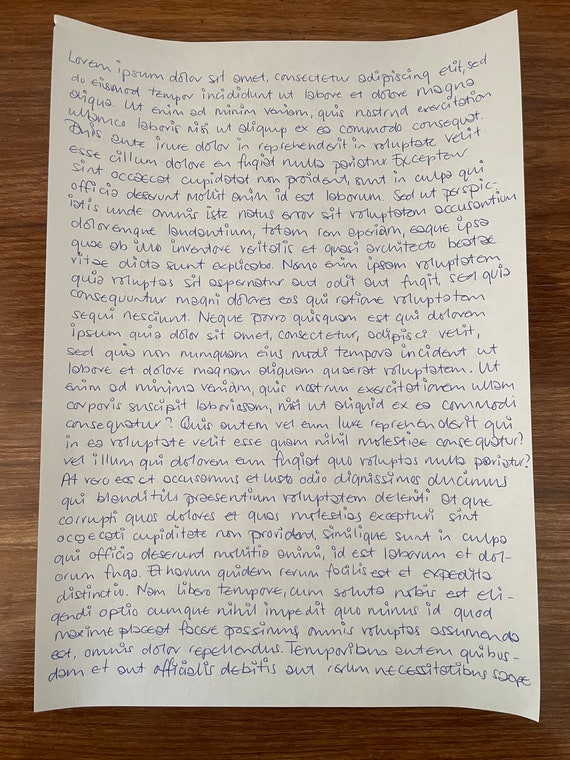 Lorem ipsum dolor sit amet, consectetur adipiscing elit, sed
do eiusmod tempor incididunt ut labore et dolore magna
aliqua. Ut enim ad minim veniam, quis nostrud exercitation
ullamco laboris nisi ut aliquip ex ea commodo consequat.
Duis aute irure dolor in reprehenderit in voluptate velit
esse cillum dolore eu fugiat nulla pariatur. Excepteur
sint occaecat cupidatat non proident, sunt in culpa qui
officia deserunt mollit anim id est laborum. Sed ut perspic-
iatis unde omnis iste natus error sit voluptatem accusantium
doloremque laudantium, totam rem aperiam, eaque ipsa
quae ab illo inventore veritatis et quasi architecto beatae
vitae dicta sunt explicabo. Nemo enim ipsam voluptatem
quia voluptas sit aspernatur aut odit aut fugit, sed quia
consequuntur magni dolores eos qui ratione voluptatem
sequi nesciunt. Neque porro quisquam est qui dolorem
ipsum quia dolor sit amet, consectetur, adipisci velit,
sed quia non numquam eius modi tempora incident ut
labore et dolore magnam aliquam quaerat voluptatem. Ut
enim ad minima veniam, quis nostrum exercitationem ullam
corporis suscipit laboriosam, nisi ut aliquid ex ea commodi
consequatur? Quis autem vel eum iure reprehenderit qui
in ea voluptate velit esse quam nihil molestiae consequatur?
vel illum qui dolorem eum fugiat quo voluptas nulla pariatur?
At vero eos et accusamus et iusto odio dignissimos ducimus
qui blanditiis praesentium voluptatem deleniti atque
corrupti quos dolores et quas molestias excepturi sint
occaecati cupiditate non provident, similique sunt in culpa
qui officia deserunt mollitia animi, id est laborum et dol-
orum fuga. Et harum quidem rerum facilis est et expedita
distinctio. Nam libero tempore, cum soluta nobis est eli-
gendi optio cumque nihil impedit quo minus id quod
maxime placeat facere possimus, omnis voluptas assumenda
est, omnis dolor repellendus. Temporibus autem quibus-
dam et aut officiis debitis aut rerum necessitatibus saepe